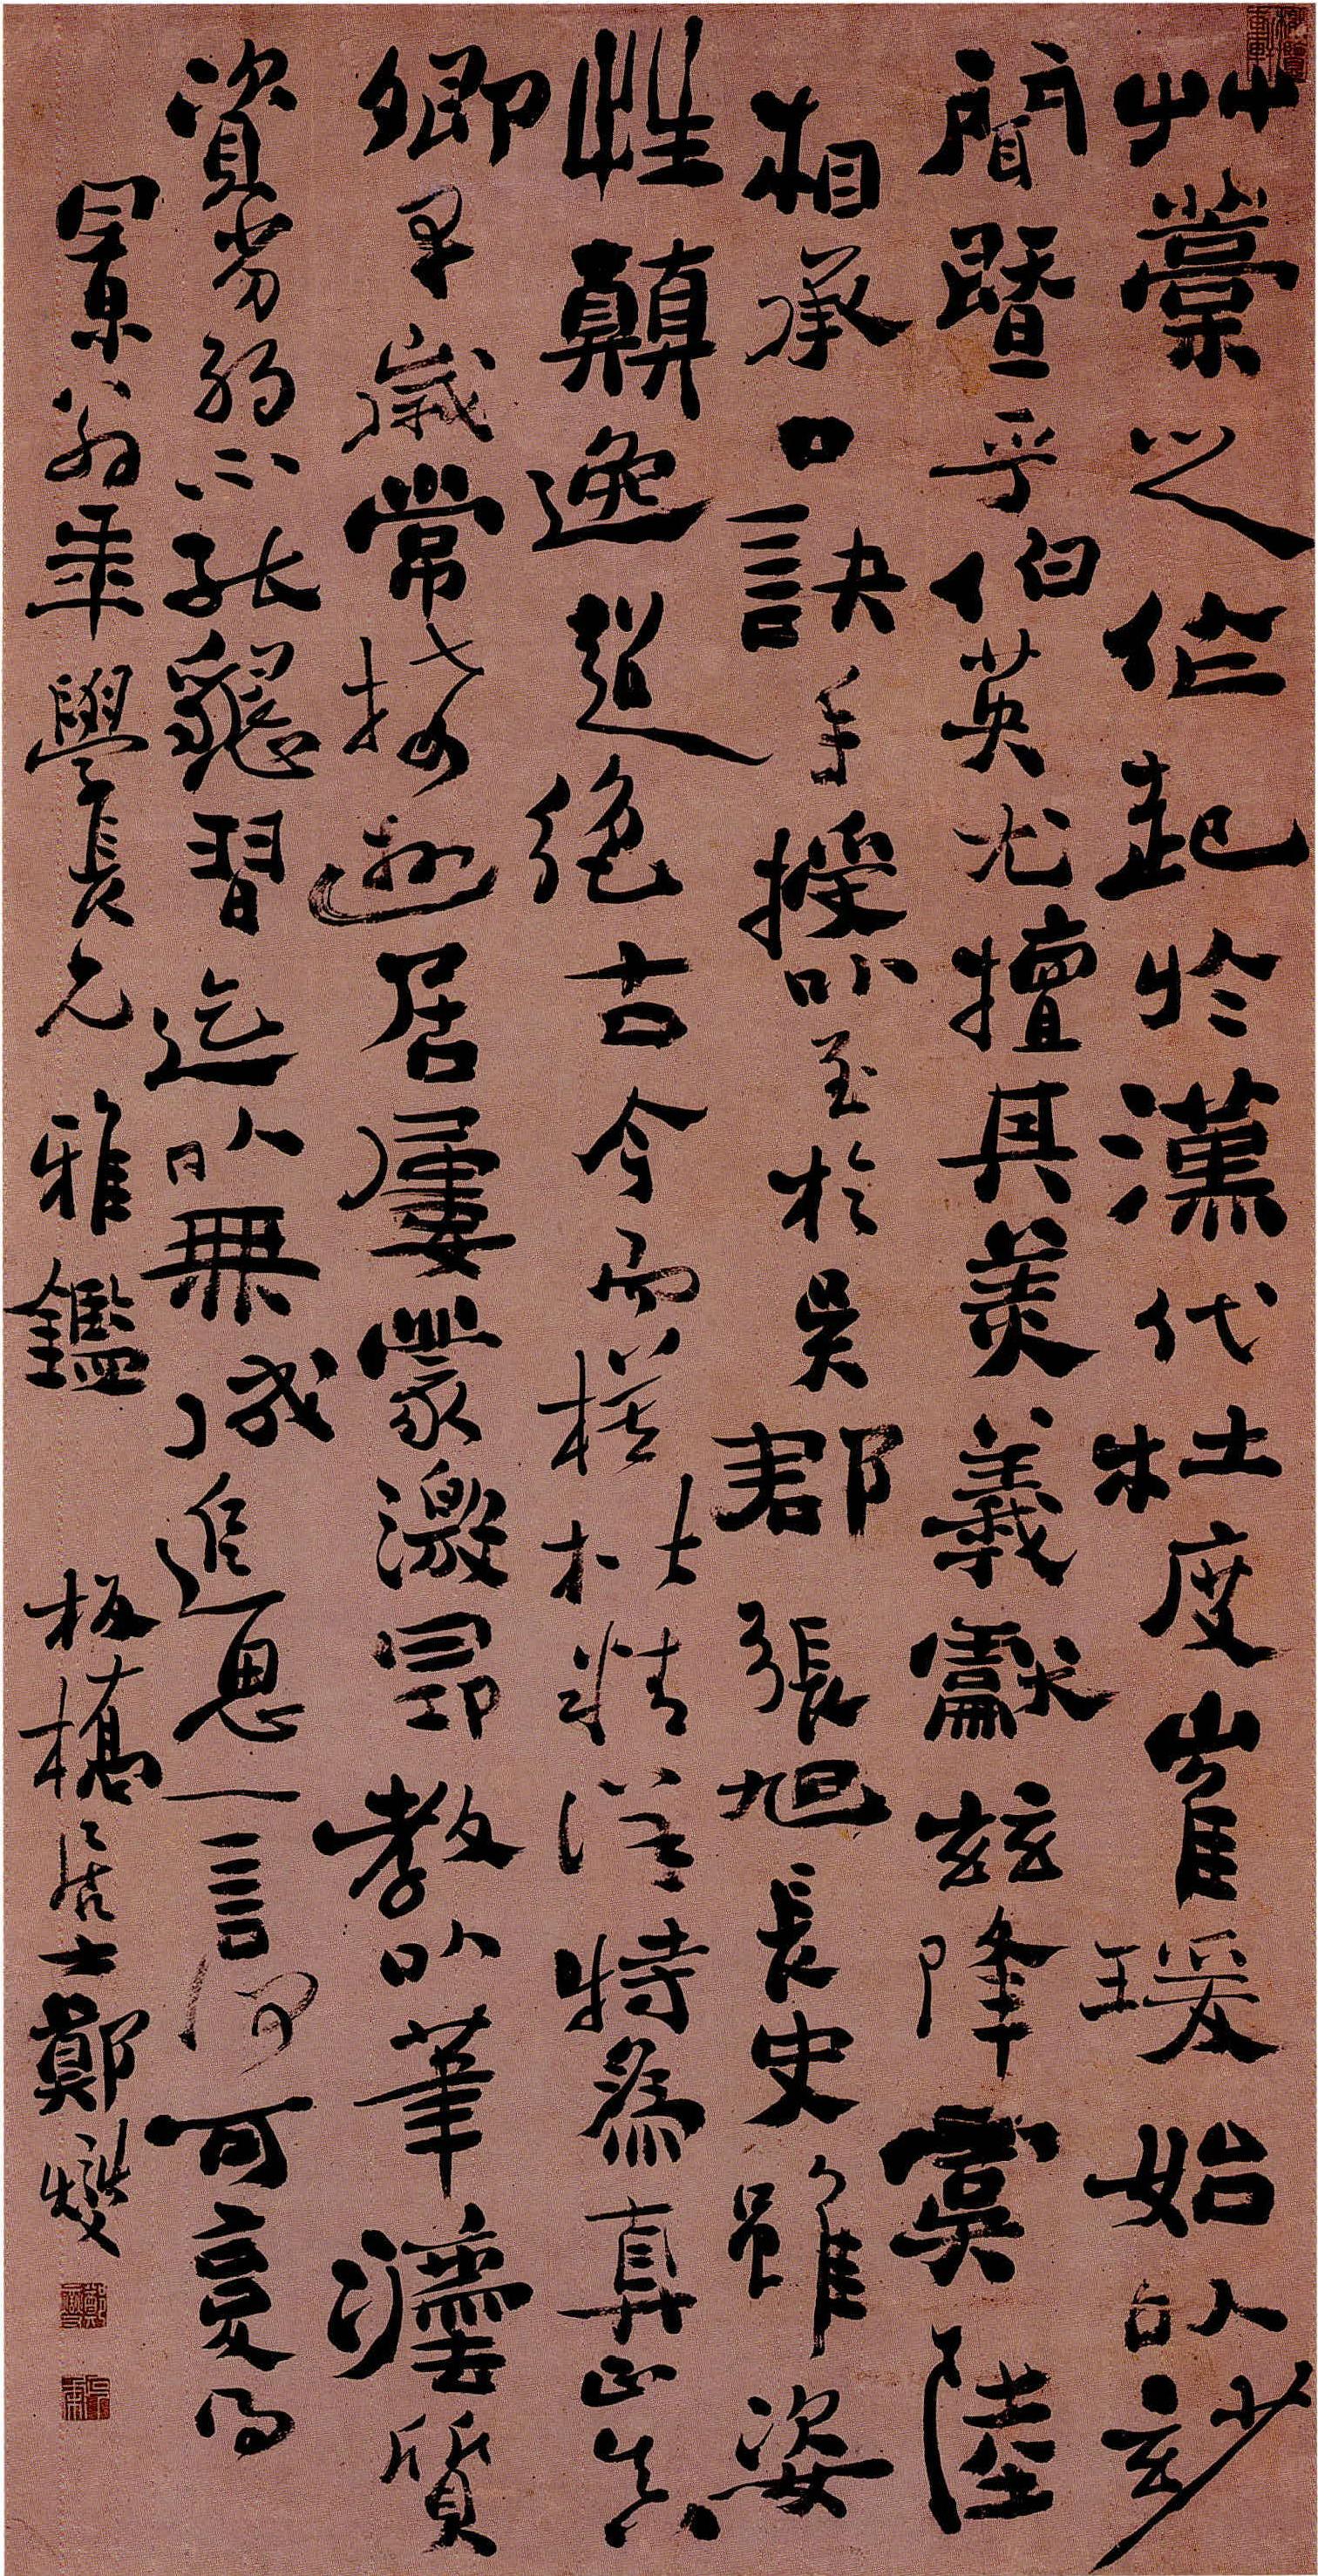 艸藁之作起於漢代杜度崔瑗始以妙
聞暨乎伯英尤擅其美羲獻玆降虞陸
相承口訣手授以至於吳郡張旭長史雖姿
性顛逸超絕古今而模楷精詳特為真正真
卿早歲常接遊居屢蒙激昂教以筆灋質
資劣弱不能懇習迄以無成追思一言何可復得
景翁年學長兄 雅鑑 板橋居士鄭燮